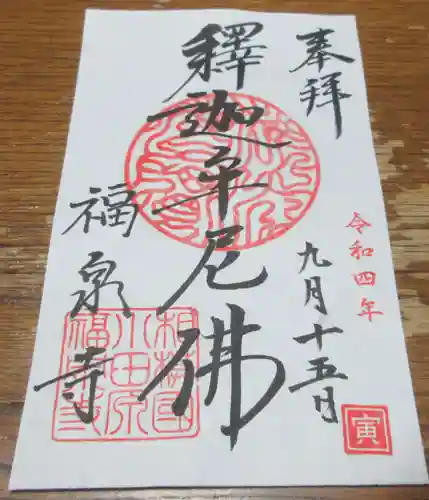 奉拝
令和四年
九月十五日
釋迦牟尼佛
福泉寺
相模國
小田原
福泉寺
寅